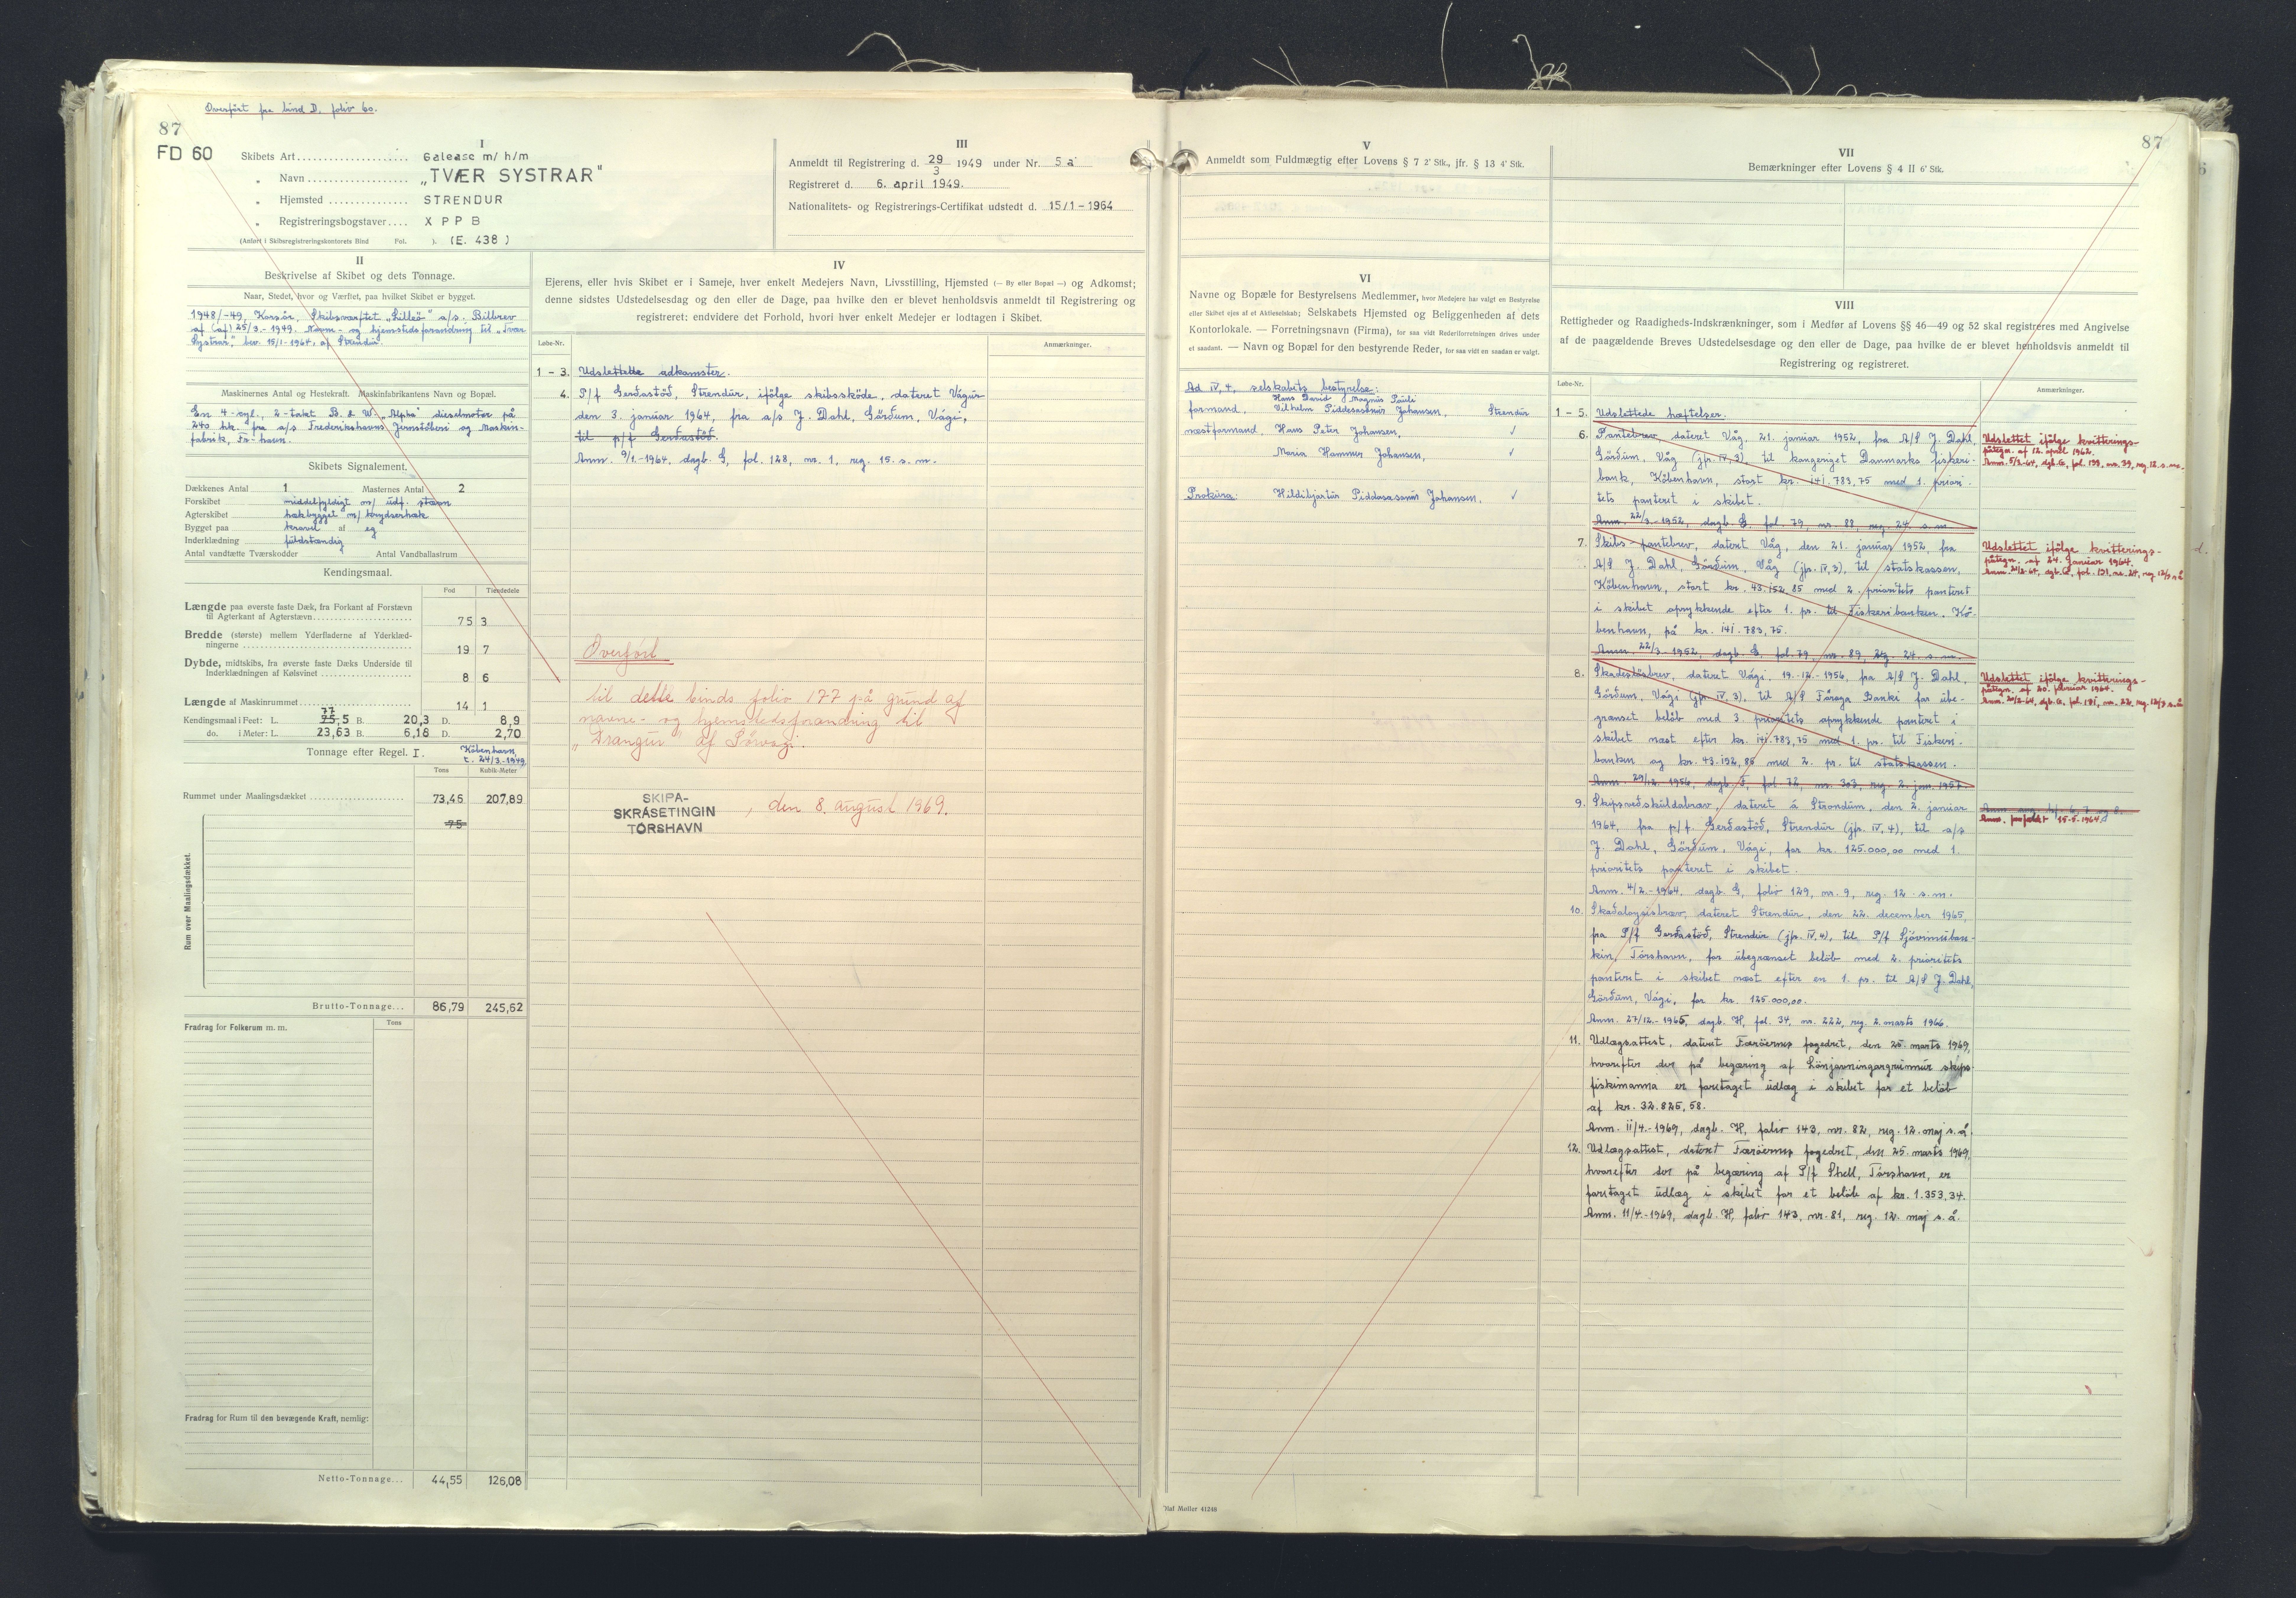 Overført fra bind D. folio 60.
87
FD 60
I
Skibets Art Galease m/h/m
„ Navn „TVÆR SYSTRAR"
„ Hjemsted STRENDUR
„ Registreringsbogstaver XPPB
(Anført i Skibsregistreringskontorets Bind Fol. ). (E. 438)
III
Anmeldt til Registrering d. 29/3 1949 under Nr. 5 a
Registreret d. 6. april 1949.
Nationalitets- og Registrerings-Certifikat udstedt d. 15/1-1964
II
Beskrivelse af Skibet og dets Tonnage.
Naar, Stedet, hvor og Værftet, paa hvilket Skibet er bygget.
1948/-49, Korsör, Skibsværftet „Lilleö" a/s. Bilbrev
af (af) 25/3.-1949. Navn- og hjemstedsforandring til „Tvær
Systrar", bev. 15/1-1964, af Strendur.
Maskinernes Antal og Hestekraft. Maskinfabrikantens Navn og Bopæl.
En 4-cyl., 2-takt B. & W. „Alpha" dieselmotor på
240 hk. fra a/s Frederikshavns Jernstöberi og Maskin-
fabrik, Fr-havn.
Skibets Signalement.
Dækkenes Antal 1 Masternes Antal 2
Forskibet middelfyldigt m/ udf. stævn
Agterskibet hækbygget m/ krydserhæk
Bygget paa kravel af eg
Inderklædning fuldstændig
Antal vandtætte Tværskodder Antal Vandballastrum
Kendingsmaal.
Fod Tiendedele
Længde paa øverste faste Dæk, fra Forkant af Forstævn
til Agterkant af Agterstævn 75 3
Bredde (største) mellem Yderfladerne af Yderklæd-
ningerne 19 7
Dybde, midtskibs, fra øverste faste Dæks Underside til
Inderklædningen af Kølsvinet 8 6
Længde af Maskinrummet 14 1
77
Kendingsmaal i Feet: L. 75,5 B. 20,3 D. 8,9
do. i Meter: L. 23,63 B. 6,18 D. 2,70
Tonnage efter Regel. I. København
d. 24/3.-1949
Tons Kubik-Meter
Rummet under Maalingsdækket 73,45 207,89
75
Rum over Maalingsdækket.
Brutto-Tonnage 86,79 245,62
Fradrag for Folkerum m. m. Tons
Fradrag for Rum til den bevægende Kraft, nemlig:
Netto-Tonnage 44,55 126,08
IV
Ejerens, eller hvis Skibet er i Sameje, hver enkelt Medejers Navn, Livsstilling, Hjemsted (— By eller Bopæl —) og Adkomst;
denne sidstes Udstedelsesdag og den eller de Dage, paa hvilke den er blevet henholdsvis anmeldt til Registrering og
registreret: endvidere det Forhold, hvori hver enkelt Medejer er lodtagen i Skibet.
Løbe-Nr. Anmærkninger.
1 - 3. Udslettede adkomster.
4. P/f Gerðastöð, Strendur, ifölge skibsskøde, dateret Vágur
den 3. januar 1964, fra a/s J. Dahl, Görðum, Vági,
til p/f Gerðastöð.
Anm. 9/1-1964, dagb. G, fol. 128, nr. 1, reg. 15. s. m.
Overført
til dette binds folio 177 på grund af
navne- og hjemstedsforandring til
„Drangur" af Sörvági.
SKIPA-
SKRÁSETINGIN
TÓRSHAVN
, den 8. august 1969.
87
V
Anmeldt som Fuldmægtig efter Lovens § 7 2' Stk., jfr. § 13 4' Stk.
VI
Navne og Bopæle for Bestyrelsens Medlemmer, hvor Medejere har valgt en Bestyrelse
eller Skibet ejes af et Aktieselskab; Selskabets Hjemsted og Beliggenheden af dets
Kontorlokale. — Forretningsnavn (Firma), for saa vidt Rederiforretningen drives under
et saadant. — Navn og Bopæl for den bestyrende Reder, for saa vidt en saadan er valgt.
Ad IV, 4, selskabets bestyrelse:
Hans David Magnus Pauli
formand, Vilhelm Piddesasonur Johansen, Strendur
næstformand, Hans Peter Johansen, ✓
Maria Hammer Johansen, ✓
Prokura: Hildibjartur Piddasasonur Johansen, ✓
Olaf Møller 41248
VII
Bemærkninger efter Lovens § 4 II 6' Stk.
VIII
Rettigheder og Raadigheds-Indskrænkninger, som i Medfør af Lovens §§ 46—49 og 52 skal registreres med Angivelse
af de paagældende Breves Udstedelsesdage og den eller de Dage, paa hvilke de er blevet henholdsvis anmeldt til
Registrering og registreret.
Løbe-Nr. Anmærkninger.
1 - 5. Udslettede hæftelser.
6. Pantebrev, dateret Våg, 21. januar 1952, fra A/S J. Dahl,
Görðum, Våg (jfr. IV, 3), til kongeriget Danmarks fiskeri-
bank, København, stort kr. 141.783,75 med 1. priori-
tets panteret i skibet.
Anm. 22/3.-1952, dagb. E. fol. 79, nr. 88, reg. 24. s. m.
Udslettet ifölge kvitterings-
påtegn. af 12. april 1962.
7. Skibs-pantebrev, dateret Våg, den 21. januar 1952, fra
A/S J. Dahl, Görðum, Våg (jfr. IV, 3) til statskassen,
København, stort kr. 43.152,85 med 2. prioritets panteret
i skibet oprykkende efter 1. pr. til Fiskeribanken, Kö-
benhavn, på kr. 141.783,75.
Anm. 22/3-1952, dagb. E. fol. 79, nr. 89, reg. 24. s. m.
Udslettet ifölge kvitterings-
påtegn. af 24. januar 1964.
8. Skadeslösbrev, dateret Vági, 19.-12.-1956, fra A/S J. Dahl,
Görðum, Vági (jfr. IV, 3), til A/S Føroya Banki for ube-
grænset beløb med 3. prioritets oprykkende panteret i
skibet næst efter kr. 141.783,75 med 1. pr. til Fiskeri-
banken og kr. 43.152,85 med 2. pr. til statskassen.
Anm. 29/12. 1956, dagb. F, fol. 72, nr. 303, reg. 2. jan. 1957.
Udslettet ifölge kvitterings-
påtegn. af 20. februar 1964.
9. Skipsveðskuldabræv, dateret á Strondum, den 2. januar
1964, fra p/f. Gerðastöð, Strendur (jfr. IV, 4), til a/s
J. Dahl, Görðum, Vági, for kr. 125.000,00 med 1.
prioritets panteret i skibet.
Anm. 4/2.-1964, dagb. G, folio 129, nr. 9, reg. 12. s. m.
10. Skaðaloysisbræv, dateret Strendur, den 22. december 1965,
fra P/f Gerðastöð, Strendur (jfr. IV, 4), til P/f Sjóvinnuban-
kin, Tórshavn, for ubegrænset beløb med 2. prioritets
panteret i skibet næst efter en 1. pr. til A/S J. Dahl,
Görðum, Vági, for kr. 125.000,00.
Anm. 27/12.-1965, dagb. H, fol. 34, nr. 222, reg. 2. marts 1966.
11. Udlægsattest, dateret Færöernes fogedret, den 25. marts 1969,
hvorefter der på begæring af Lönjavningargrunnur skips-
fiskimanna er foretaget udlæg i skibet for et beløb
af kr. 32.825,58.
Anm. 11/4.-1969, dagb. H, folio 143, nr. 82, reg. 12. maj s. å.
12. Udlægsattest, dateret Færöernes fogedret, den 25. marts 1969,
hvorefter der på begæring af P/f Shell, Tórshavn, er
foretaget udlæg i skibet for et beløb af kr. 1.353,34.
Anm. 11/4.-1969, dagb. H, folio 143, nr. 81, reg. 12. maj s. å.